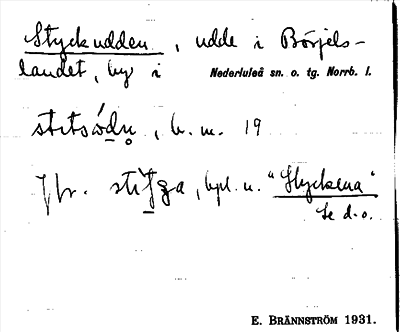 Styckudden, udde i Börjels-
landet, by i Nederluleå sn. o. tg. Norrb. l.
, b. m. 19
Jfr. , bpl. u. "Styckena"
Se d.o.
E. BRÄNNSTRÖM 1931.